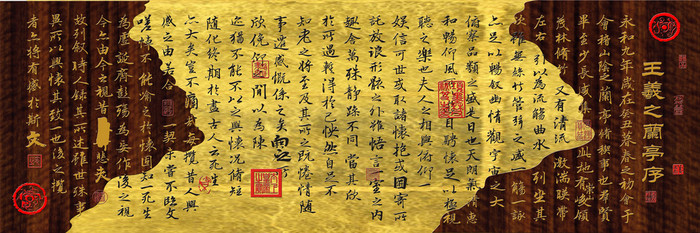 王羲之蘭亭序
永和九年歲在癸丑暮春之初會于
會稽山陰之蘭亭修稧事也群賢
畢至少長咸集此地有峻領
茂林脩竹又有清流激湍暎帶
左右引以為流觴曲水列坐其
次雖無絲竹管弦之盛一觴一詠
亦足以暢敘幽情觀宇宙之大
俯察品類之盛是日也天朗氣清惠
和暢仰風騁懷足以極視
聽之樂也夫人之相與俯仰一
娛信可世或取諸懷抱或因寄所
託放浪形骸之外雖悟言一室之內
趣舍萬殊靜躁不同當其欣
於所遇暫得於己快然自足不
知老之將至及其所之既惓情隨
事遷感慨係之矣向之
欣俛仰之間以為陳
迹猶不能不以之興懷況脩短
隨化終期於盡古人云死生
亦大矣豈不痛哉每攬昔人興
感之由若合一契未嘗不臨文
嗟悼不能喻之於懷固知一死生
為虛誕齊彭殤為妄作後之視
今亦由今之視昔悲夫
故列敘時人錄其所述雖世殊事
異所以興懷其致一也後之攬
者亦將有感於斯文